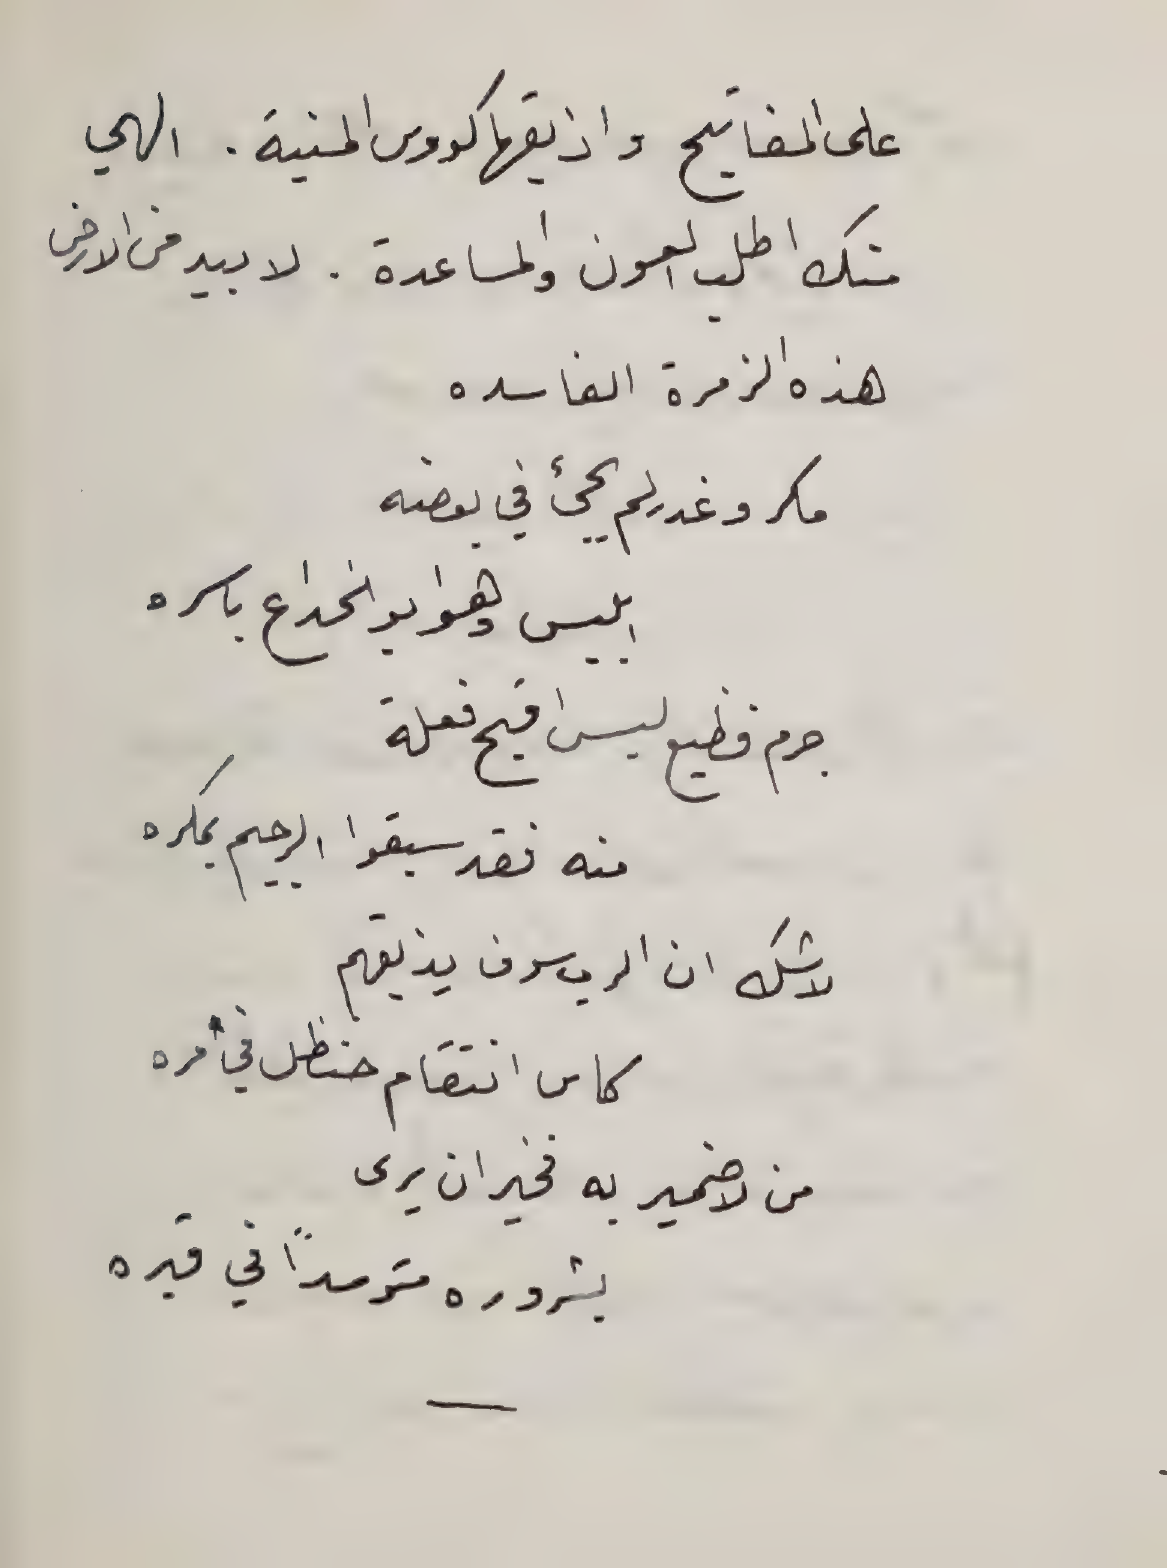 على المفاتيح واذيقها كووس المنية . الهي
منك اطلب العون والمساعدة . لا بيد من الارض
هذه الزمرة الفاسده
مكر وغدر لم يجئ في بعضه
ابليس وهو ابو الخداع باسره
جرم فظيع ليس اقبح فعلة
منه فقد سبقوا الرجيم بمكره
لا شك ان الرب سوف يذيقهم
كاس انتقام حنظل في أمره
من لا ضمير به فخير ان يرى
بشروره متوسداً في قبره